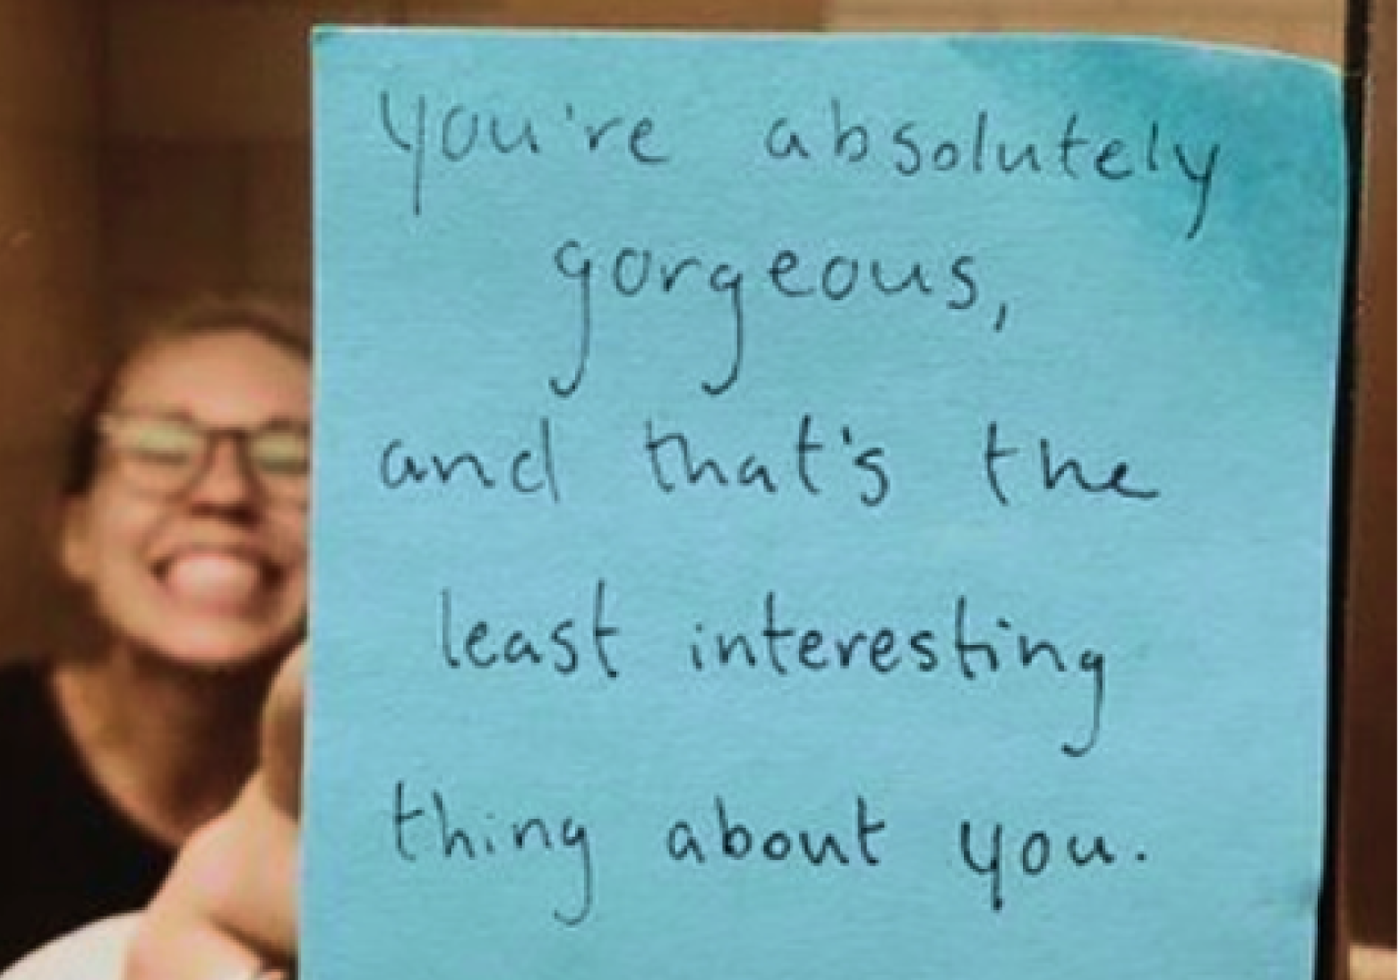 you're absolutely
gorgeous,
and that's the
least interesting
thing about you.